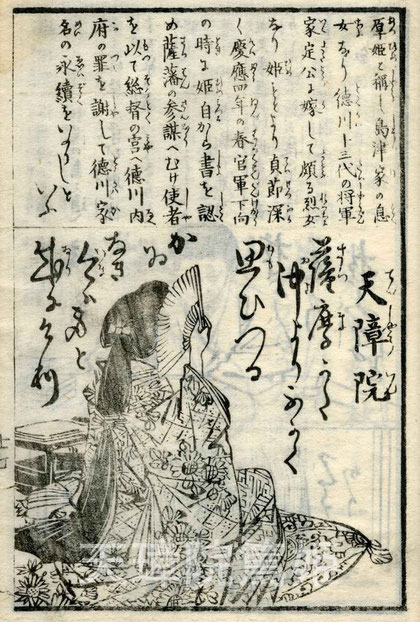 原姫と称し島津家の息
女なり徳川十三代の将軍
家定公に嫁して頗る烈女
なり姫もとより貞節深
く慶應四年の春官軍下向
の時に姫自から書を認
め薩藩の参謀へむけ使者
を以て総督の宮へ徳川内
府の罪を謝して徳川家
名の永續をいのりしといふ
天障院
薩摩かた
沖よりふかく
思ひつる
かゐ
なき
天璋院篤姫